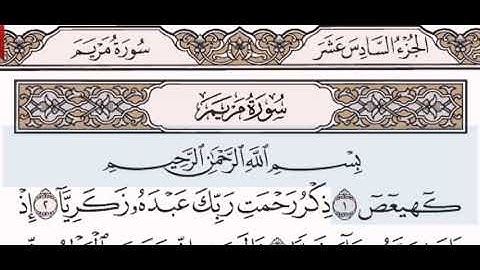 الجزء السادس عشر
سورة مريم
سورة مريم
بِسْمِ ٱللَّهِ ٱلرَّحْمَٰنِ ٱلرَّحِيمِ
كٓهيعٓصٓ ١ ذِكْرُ رَحْمَتِ رَبِّكَ عَبْدَهُۥ زَكَرِيَّآ ٢ إِذْ